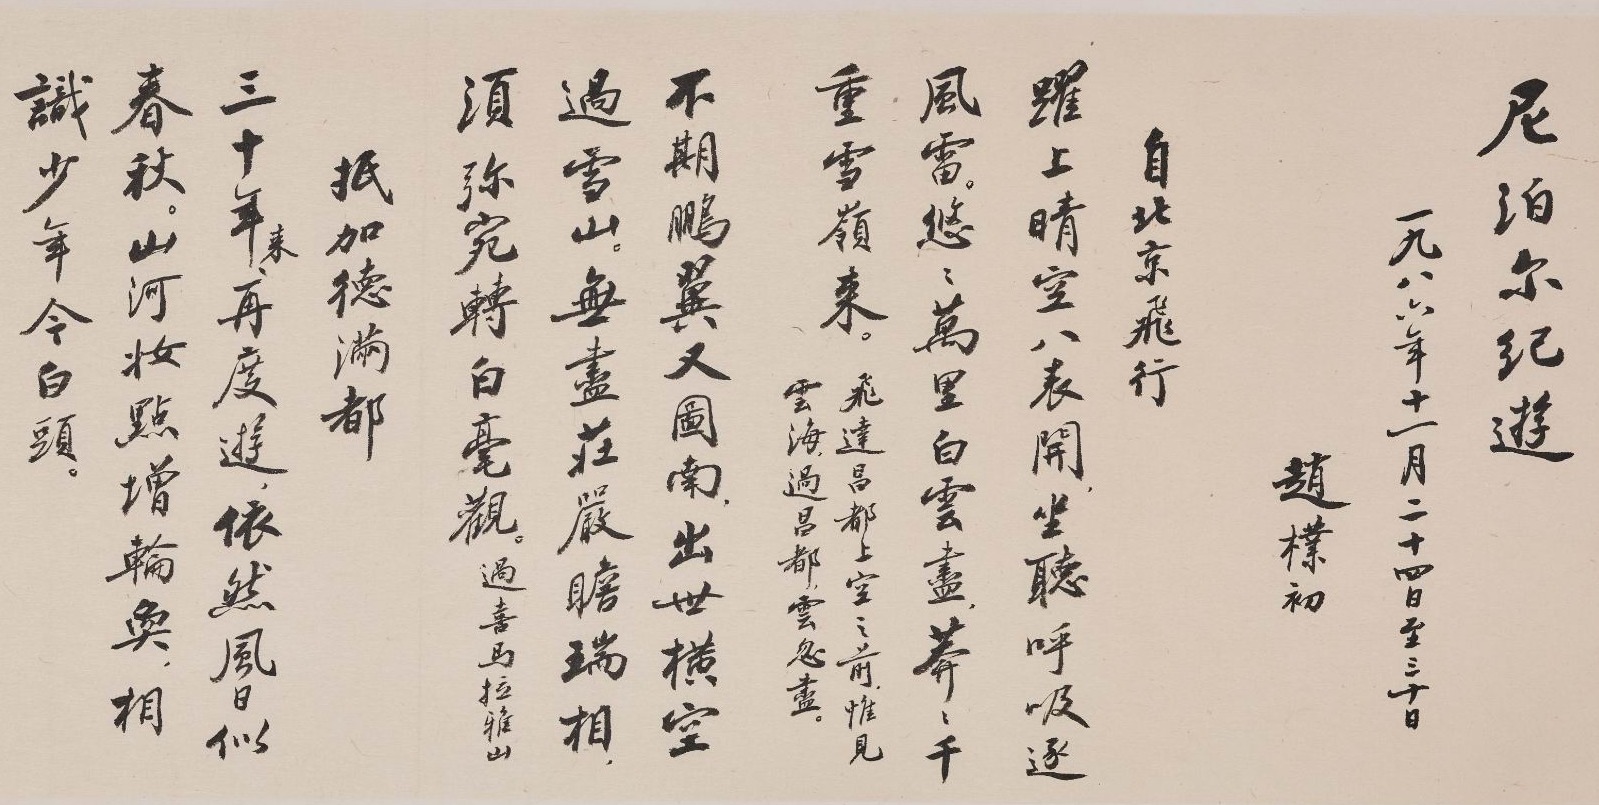 尼泊尔纪遊
一九八六年十一月二十四日至三十日
趙樸初
自北京飛行
躍上晴空八表開，坐聽呼吸逐
風雷。悠〻萬里白雲盡，莽〻千
重雪嶺来。
飛達昌都上空之前，惟見
雲海，過昌都，雲忽盡。
不期鵬翼又圖南，出世橫空
過雪山。無盡莊嚴瞻瑞相，
須弥宛轉白毫觀。過喜马拉雅山
抵加德滿都
三十年来，再度遊，依然風日似
春秋。山河妝點增輪奐，相
識少年今白頭。